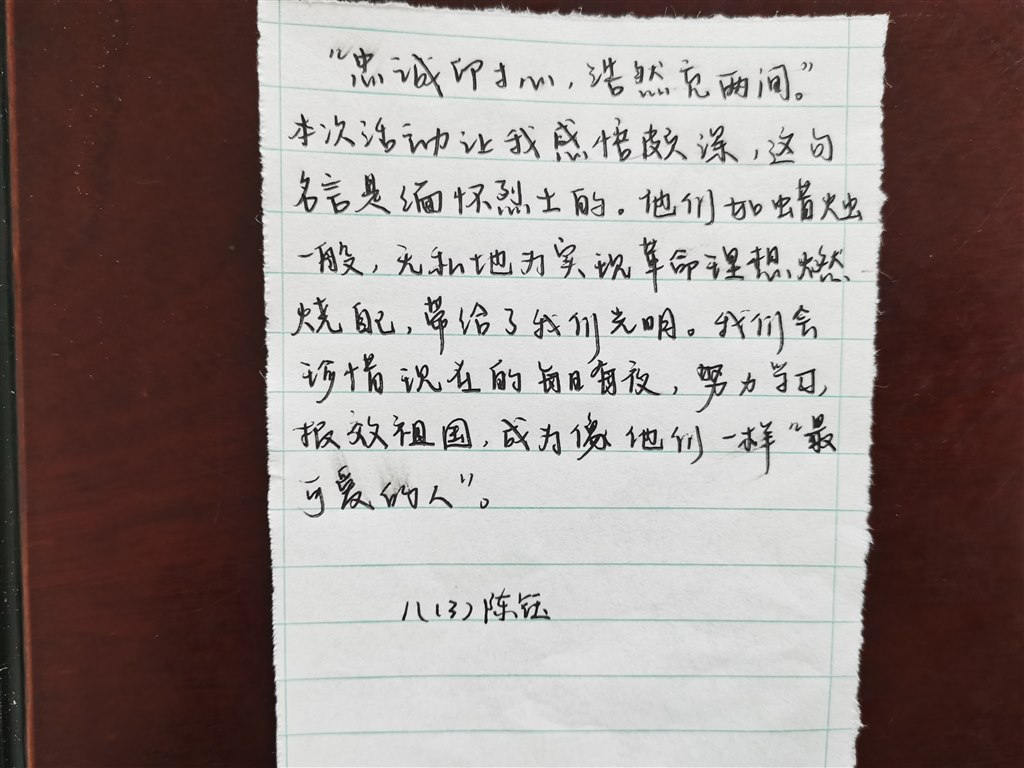 “忠诚印寸心，浩然充两间。”
本次活动让我感悟颇深，这句
名言是缅怀烈士的。他们如蜡烛
一般，无私地为实现革命理想燃
烧自己，带给了我们光明。我们会
珍惜现在的每日每夜，努力学习，
报效祖国，成为像他们一样“最
可爱的人”。
八(3)陈钰